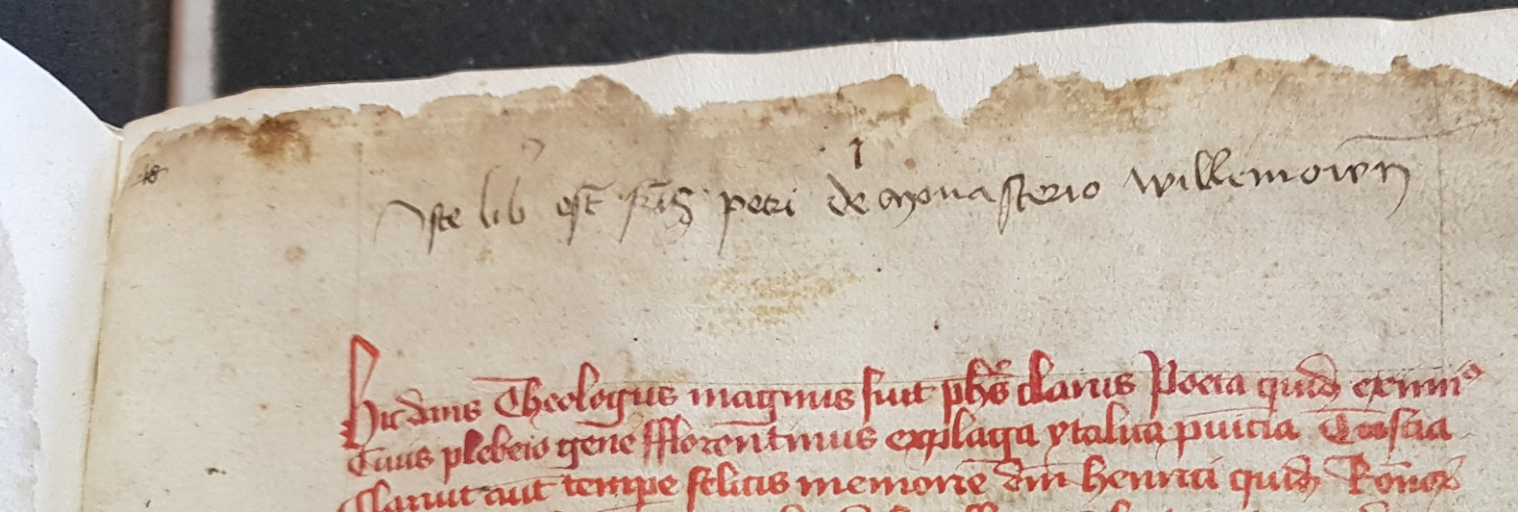 Iste lib est fris petri de monasterio willemowen
Hic dans Theologus magnus fuit phs clarus Poeta quid eximi
Ciuis plebeio gene fflorentinus ex plaga ytalica puicia Tuscia
Claruit aut tempe felicis memorie dni henrici quid Romor